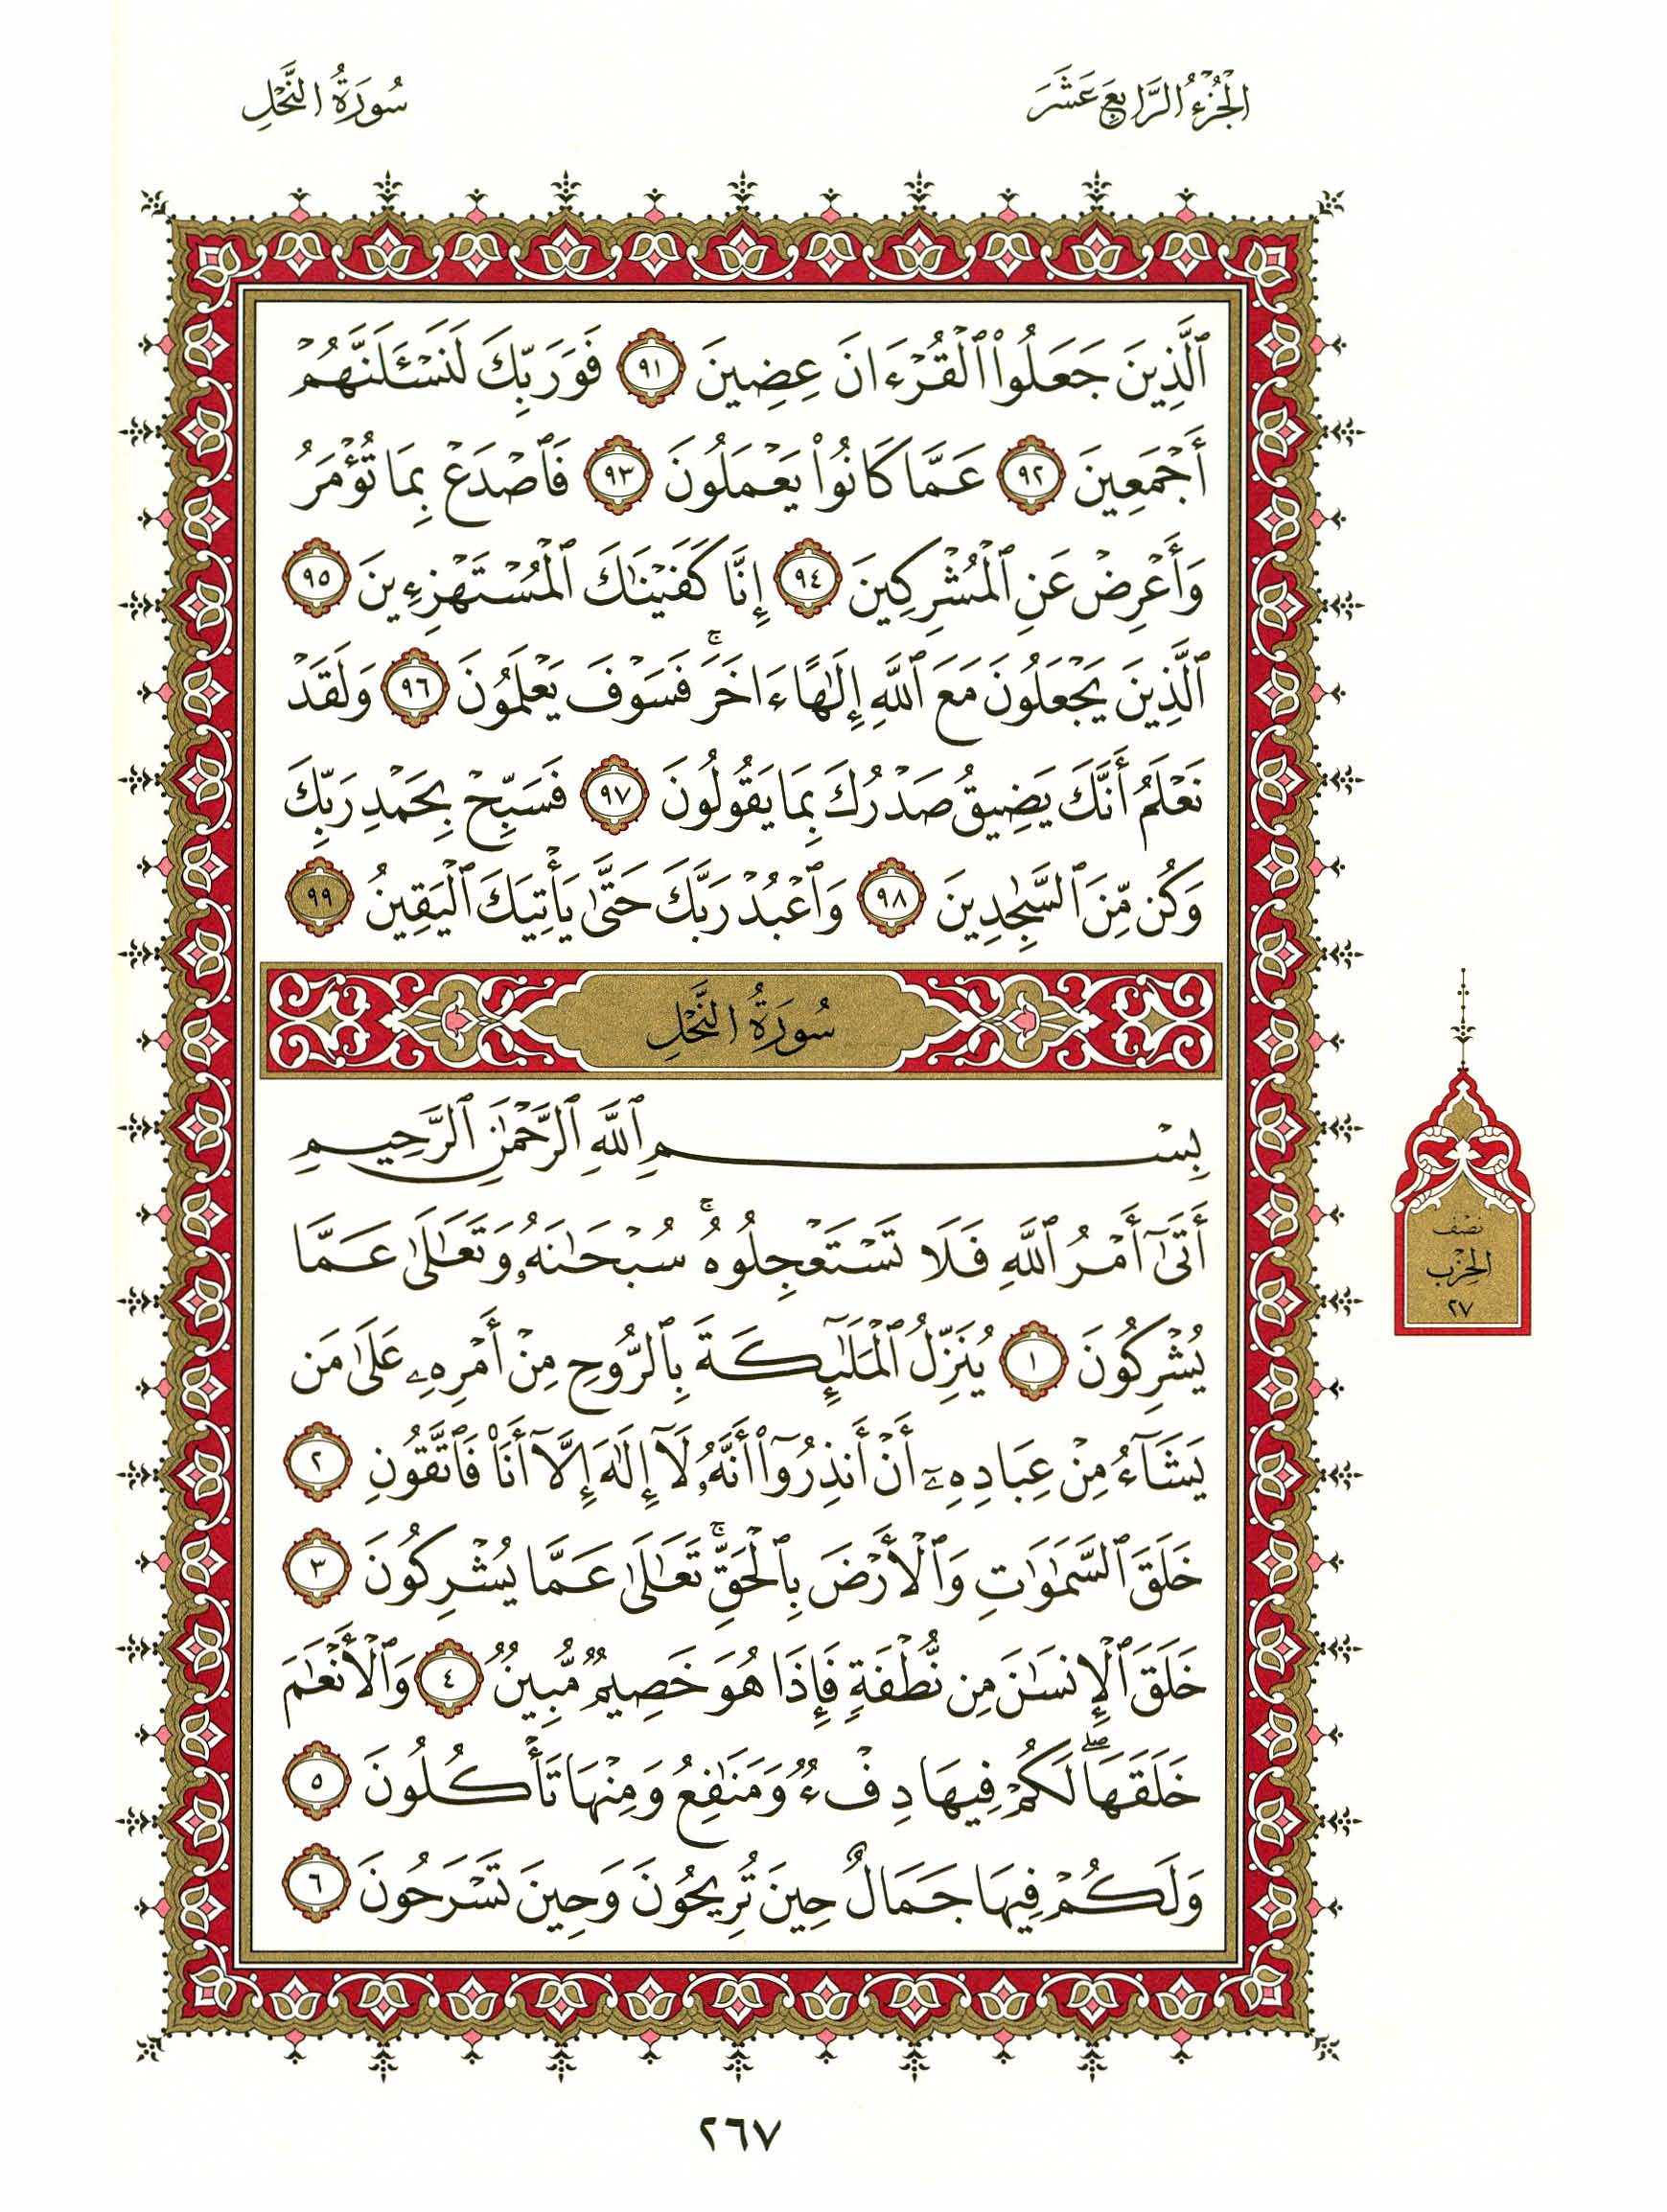 الجُزْءُ الرَّابِعَ عَشَرَ
سُورَةُ النَّحْلِ
ٱلَّذِينَ جَعَلُوا۟ ٱلْقُرْءَانَ عِضِينَ ٩١ فَوَرَبِّكَ لَنَسْـَٔلَنَّهُمْ
أَجْمَعِينَ ٩٢ عَمَّا كَانُوا۟ يَعْمَلُونَ ٩٣ فَٱصْدَعْ بِمَا تُؤْمَرُ
وَأَعْرِضْ عَنِ ٱلْمُشْرِكِينَ ٩٤ إِنَّا كَفَيْنَٰكَ ٱلْمُسْتَهْزِءِينَ ٩٥
ٱلَّذِينَ يَجْعَلُونَ مَعَ ٱللَّهِ إِلَٰهًا ءَاخَرَ ۚ فَسَوْفَ يَعْلَمُونَ ٩٦ وَلَقَدْ
نَعْلَمُ أَنَّكَ يَضِيقُ صَدْرُكَ بِمَا يَقُولُونَ ٩٧ فَسَبِّحْ بِحَمْدِ رَبِّكَ
وَكُن مِّنَ ٱلسَّٰجِدِينَ ٩٨ وَٱعْبُدْ رَبَّكَ حَتَّىٰ يَأْتِيَكَ ٱلْيَقِينُ ٩٩
سُورَةُ النَّحْلِ
بِسْمِ ٱللَّهِ ٱلرَّحْمَٰنِ ٱلرَّحِيمِ
أَتَىٰٓ أَمْرُ ٱللَّهِ فَلَا تَسْتَعْجِلُوهُ ۚ سُبْحَٰنَهُۥ وَتَعَٰلَىٰ عَمَّا
يُشْرِكُونَ ١ يُنَزِّلُ ٱلْمَلَٰٓئِكَةَ بِٱلرُّوحِ مِنْ أَمْرِهِۦ عَلَىٰ مَن
يَشَآءُ مِنْ عِبَادِهِۦٓ أَنْ أَنذِرُوٓا۟ أَنَّهُۥ لَآ إِلَٰهَ إِلَّآ أَنَا۠ فَٱتَّقُونِ ٢
خَلَقَ ٱلسَّمَٰوَٰتِ وَٱلْأَرْضَ بِٱلْحَقِّ ۚ تَعَٰلَىٰ عَمَّا يُشْرِكُونَ ٣
خَلَقَ ٱلْإِنسَٰنَ مِن نُّطْفَةٍ فَإِذَا هُوَ خَصِيمٌ مُّبِينٌ ٤ وَٱلْأَنْعَٰمَ
خَلَقَهَا ۖ لَكُمْ فِيهَا دِفْءٌ وَمَنَٰفِعُ وَمِنْهَا تَأْكُلُونَ ٥
وَلَكُمْ فِيهَا جَمَالٌ حِينَ تُرِيحُونَ وَحِينَ تَسْرَحُونَ ٦
نصف
الحزب
٢٧
٢٦٧